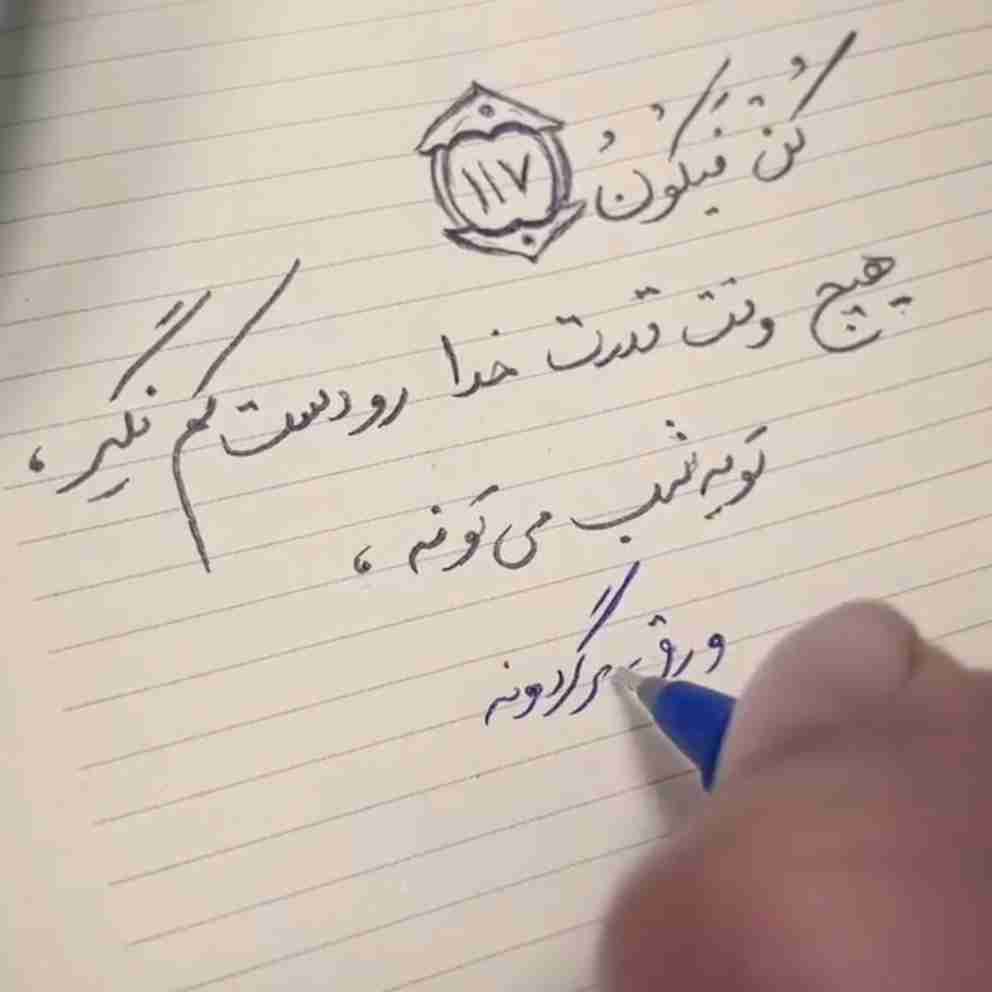 کُن فَیَکُونُ ۱۱۷
هیچ وقت قدرت خدا رو دست کم نگیر،
تو یه شب می تونه،
ورق برگردونه